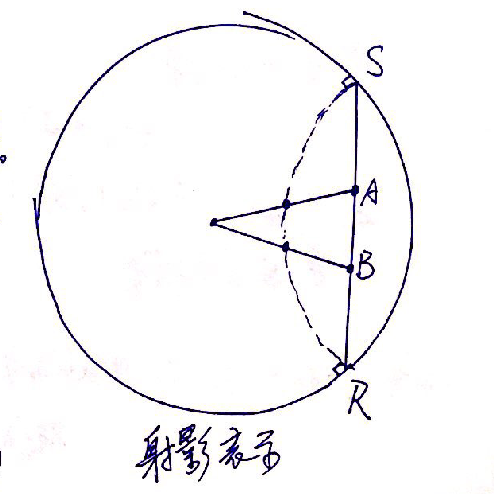 S
A
B
R
射影表示